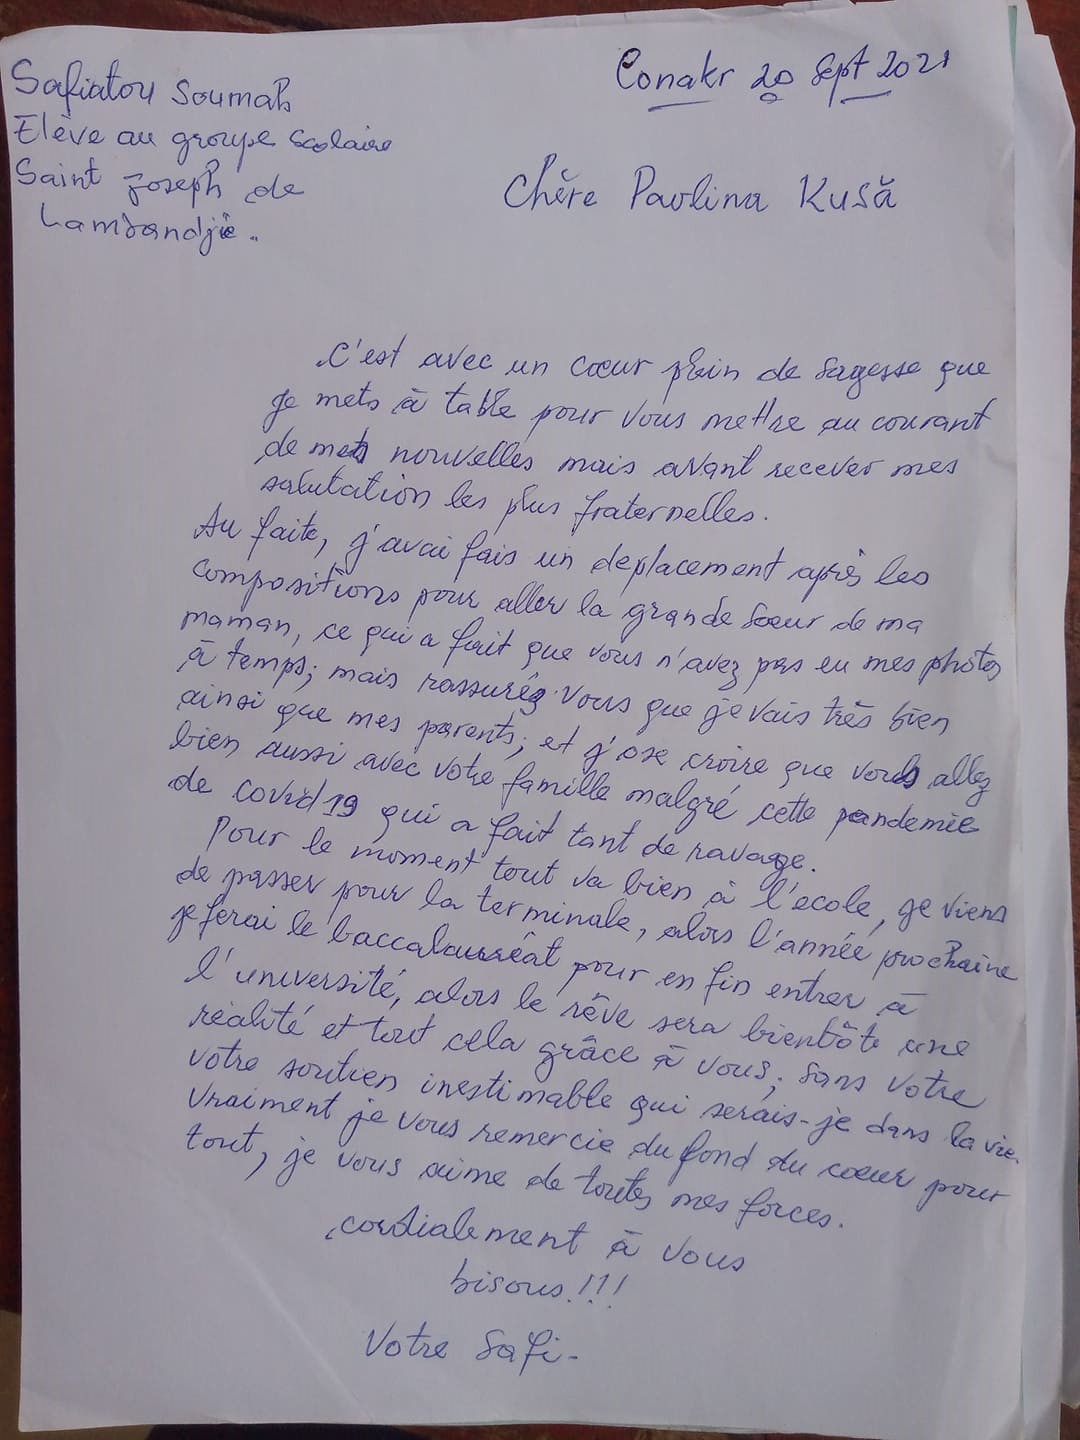 Safiatou Soumah
Elève au groupe scolaire
Saint Joseph de
Lambandji.
Conakr 20 Sept 2021
Chère Pavlina Kusă
C'est avec un cœur plein de sagesse que
je mets à table pour vous mettre au courant
de mes nouvelles mais avant recever mes
salutation les plus fraternelles.
Au faite, j'avai fais un deplacement après les
compositions pour aller la grande sœur de ma
maman, ce qui a fait que vous n'avez pas eu mes photos
à temps; mais rassurés-vous que je vais très bien
ainsi que mes parents; et j'ose croire que vous allez
bien aussi avec votre famille malgré cette pandemie
de covid 19 qui a fait tant de ravage.
Pour le moment tout va bien à l'école, je viens
de passer pour la terminale, alors l'année prochaine
je ferai le baccalauréat pour en fin entrer à
l'université, alors le rêve sera bientôt une
réalité et tout cela grâce à vous; sans votre
votre soutien inestimable qui serais-je dans la vie.
vraiment je vous remercie du fond du cœur pour
tout, je vous aime de toutes mes forces.
cordialement à vous
bisous!!!
Votre Safi-